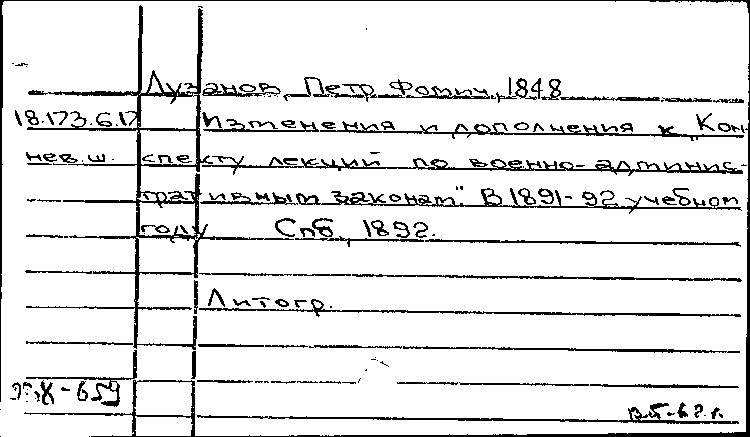 Лузанов, Петр Фомич, 1848
18.173.6.17 Изменения и дополнения к "Кон-
нев.ш. спекту лекций по военно-админис-
тративным законам". В 1891-92 учебном
году Спб., 1892.
Литогр.
-659